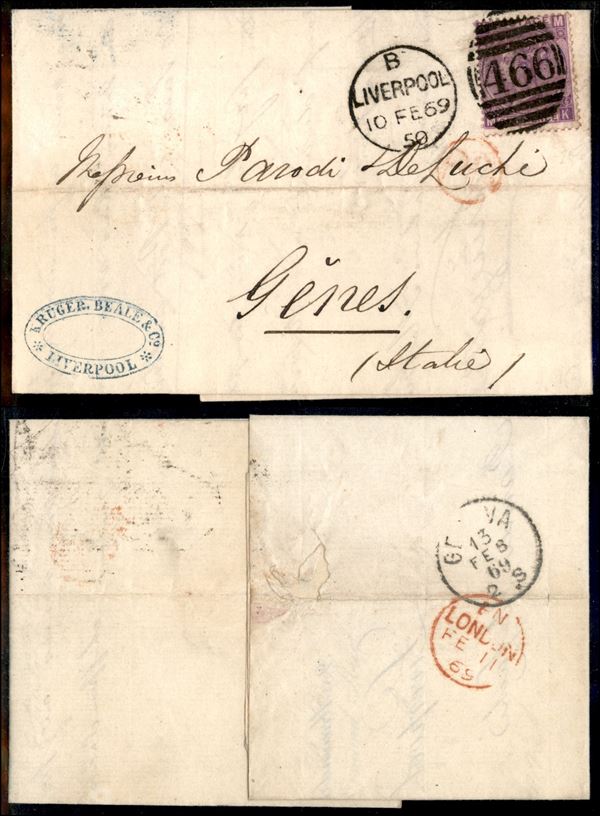 B
LIVERPOOL
10 FE 69
50
466
M
K
Messieurs Parodi & DeLuchi
Gênes.
(Italie)
KRUGER, BEALE & Co
LIVERPOOL
13
FEB
69
2 S
LONDON
FE 11
69